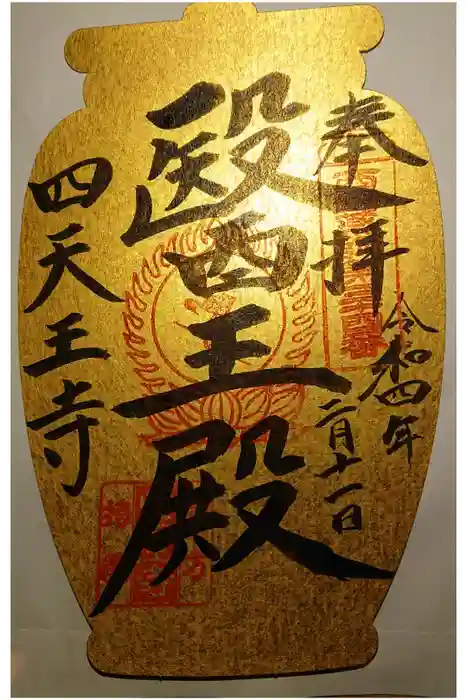 奉拝
令和四年
二月十一日
醫王殿
四天王寺